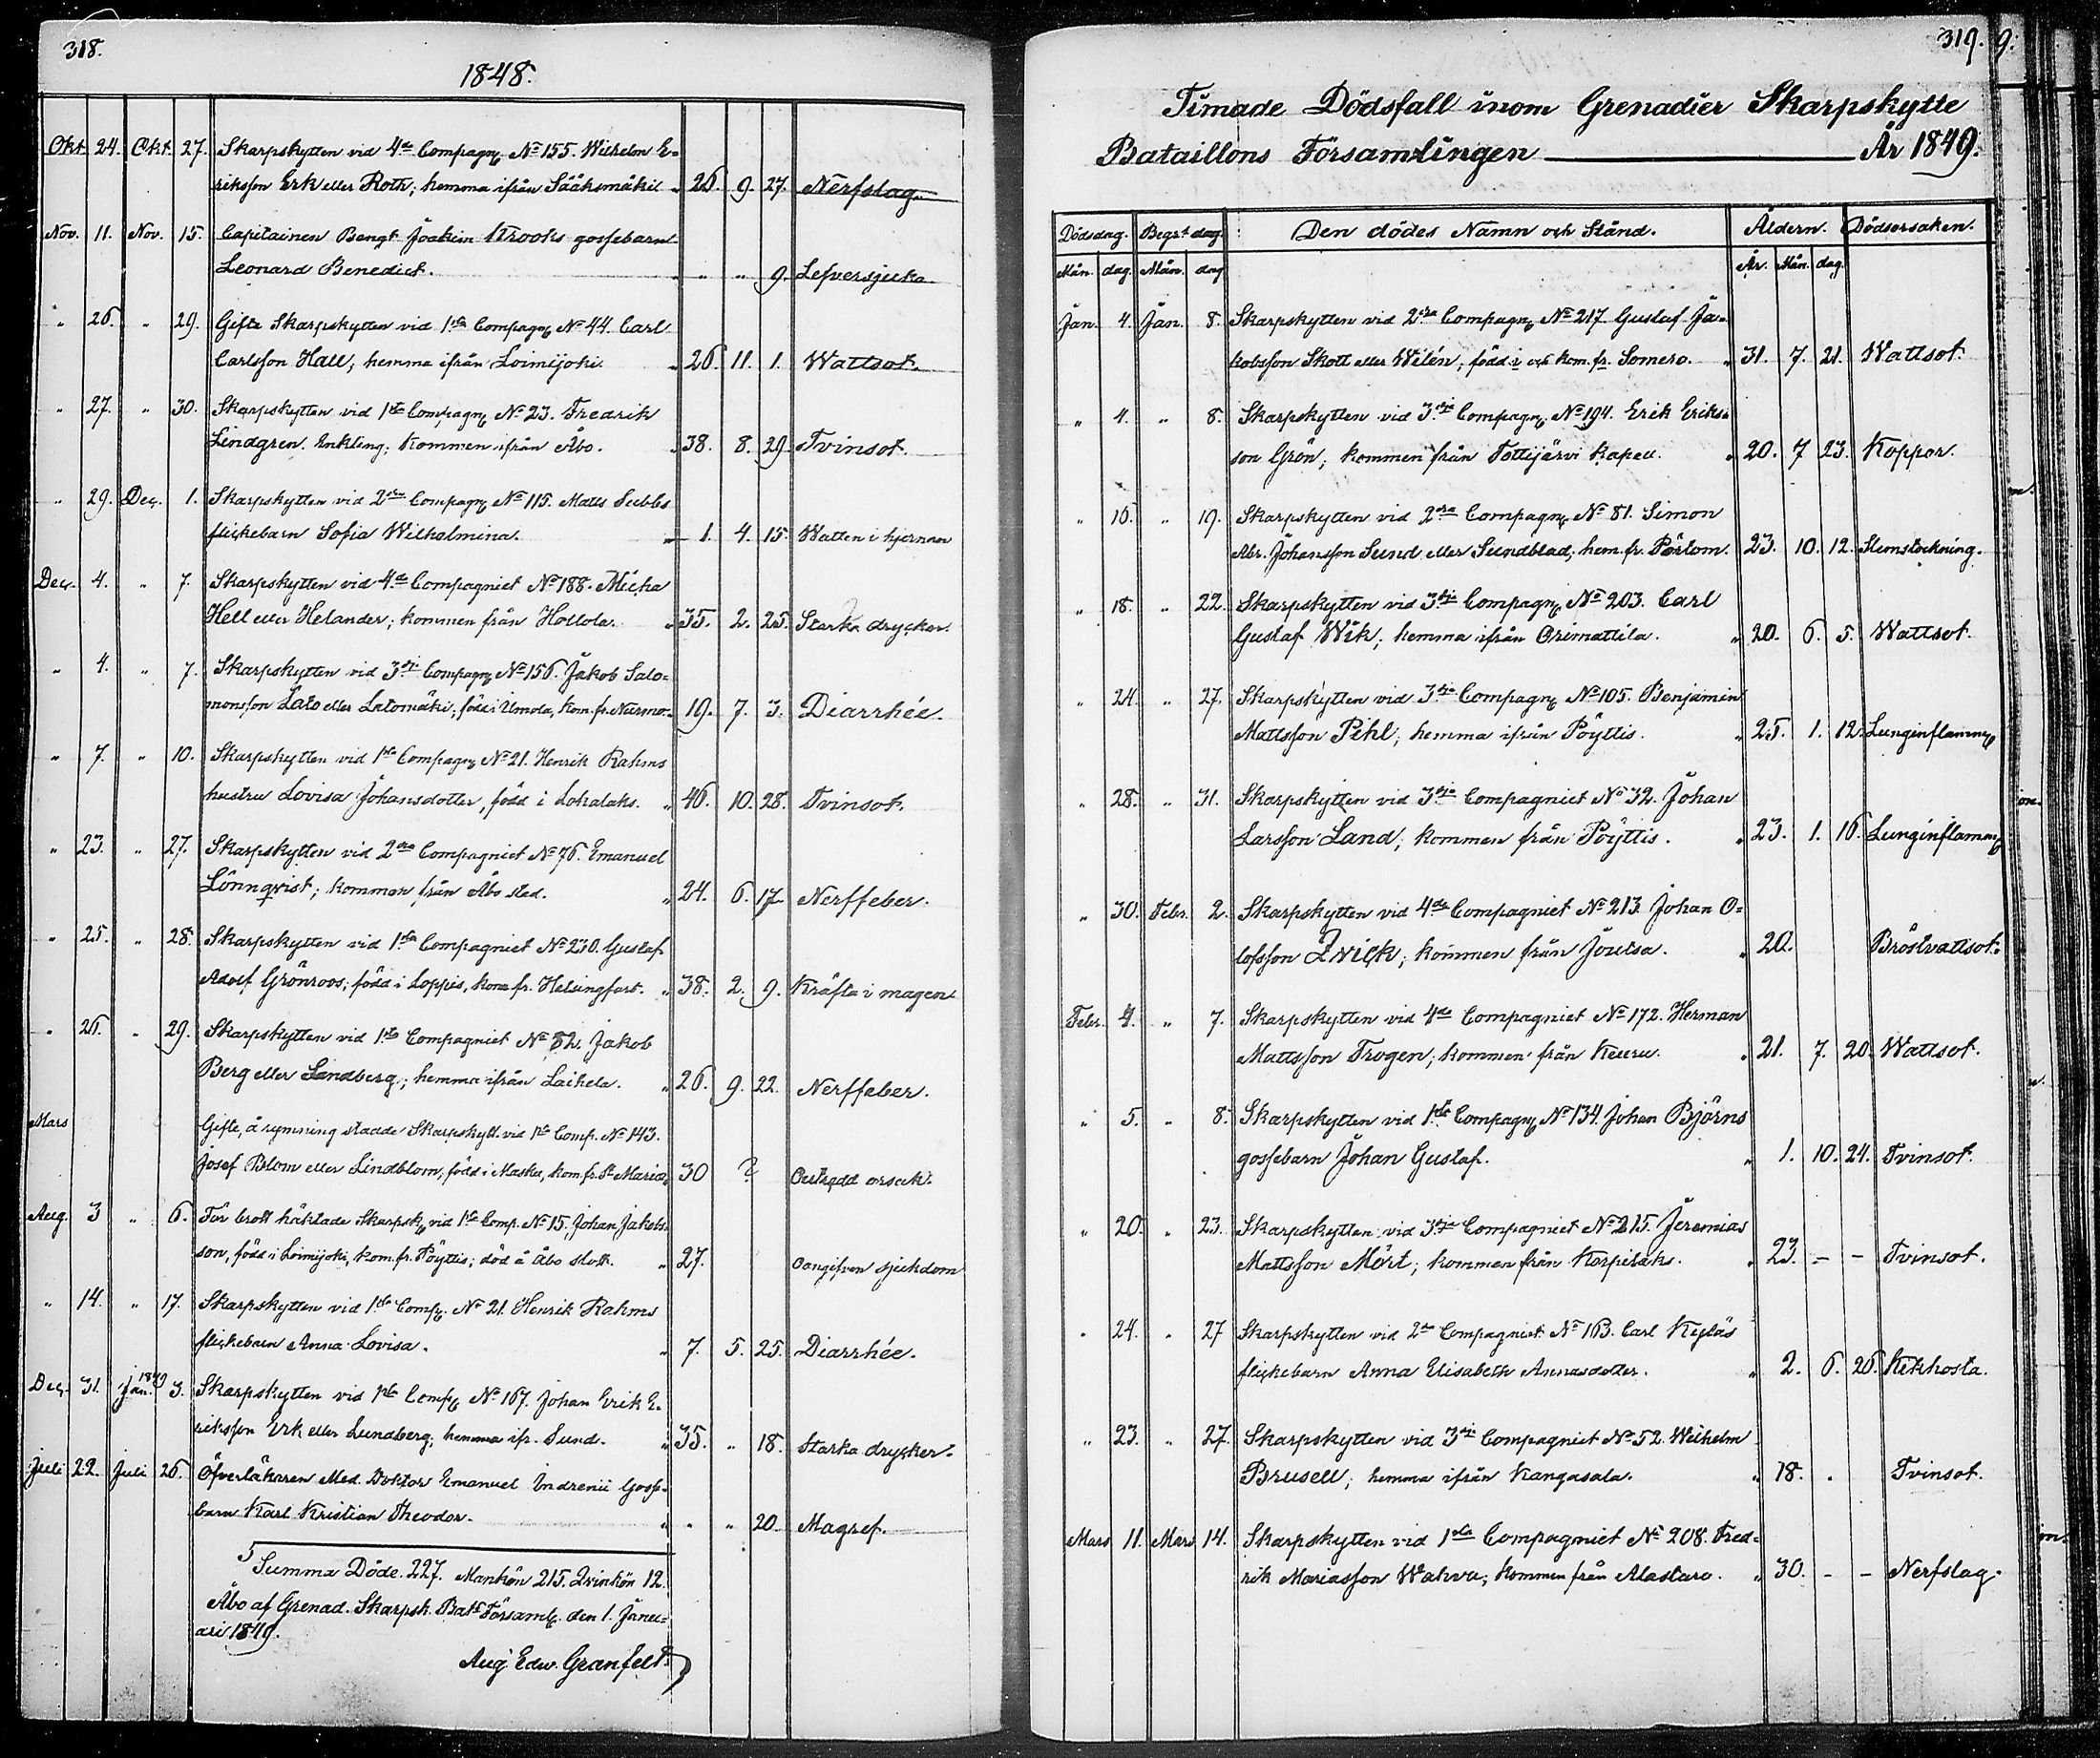 318.
1848.
Okt. 24. Okt. 27. Skarpskytten vid 4de Compagn. No 155. Wilhelm E=
riksson Erk eller Roth; hemma ifrån Sääksmäki " 26. 9. 27. Nerfslag.
Nov. 11. Nov. 15. Capitainen Bengt Joakim Krooks gossebarn
Leonard Benedict. " " 9. Lefversjuka.
" 26. " 29. Gifte Skarpskytten vid 1sta Compagn. No 44. Carl
Carlsson Hall, hemma ifrån Loimijoki. " 26. 11. 1. Wattsot.
" 27. " 30. Skarpskytten vid 1sta Compagn. No 23. Fredrik
Lindgren. Enkling; kommen ifrån Åbo. " 38. 8. 29. Tvinsot.
" 29. Dec. 1. Skarpskytten vid 2dra Compagn. No 115. Matts
flickebarn Sofia Wilhelmina. " 1. 4. 15. Watten i hjernan
Dec. 4. " 7. Skarpskytten vid 4de Compagniet No 188. Micha
Hell eller Helander; kommen från Hollola. " 35. 2. 25. Starka drycker.
" 4. " 7. Skarpskytten vid 3dje Compagn. No 156. Jakob Salo=
monsson Lato eller Latomäki, född i Ulmola, kom. fr. Nurmo. 19. 7. 3. Diarrhée.
" 7. " 10. Skarpskytten vid 1sta Compagn. No 21. Henrik Rahms
hustru Lovisa Johansdotter, född i Lokalaks. " 46. 10. 28. Tvinsot.
" 23. " 27. Skarpskytten vid 2dra Compagniet No 76. Emanuel
Lönnqvist; kommen från Åbo stad. " 24. 6. 17. Nerffeber.
" 25. " 28. Skarpskytten vid 1sta Compagniet No 230. Gustaf
Adolf Grönroos; född i Loppis, kom fr. Helsingfors. " 38. 2. 9. Kräfta i magen
" 26. " 29. Skarpskytten vid 1sta Compagniet No 52. Jakob
Berg eller Sandberg; hemma ifrån Laihela. " 26. 9. 22. Nerffeber.
Mars Gifte, å rymning stadde Skarpskytt. vid 1sta Comp. No 143.
Josef Blom eller Lindblom, född i Masku, kom. fr. St Marie. 30 ? Outredd orsak.
Aug. 3 " 6. För brott häktade Skarpsk. vid 1sta Comp. No 15. Johan Jakobs=
son, född i Loimijoki, kom. fr. Pöyttis; död å Åbo slott. " 27. Oangifven sjukdom
" 14. " 17. Skarpskytten vid 1sta Comp. No 21. Henrik Rahms
flickebarn Anna Lovisa. " 7. 5. 25. Diarrhée.
Dec. 31. Jan. 1849 3. Skarpskytten vid 1sta Comp. No 167. Johan Erik E=
riksson Erk eller Lundberg; hemma ifr. Sund. " 35. " 18. Starka drycker.
Juli 22. Juli 26. Öfverläkaren Med. Doktor Emanuel Indrenii Gosse=
barn Karl Kristian Theodor. " " " 20. Magref.
Summa Döde. 227. Mankön 215. Qvinkön 12.
Åbo af Grenad. Skarpsk. Bats Församl. den 1. Janu=
ari 1849.
Aug. Edw. Granfelt.
319. 9.
Timade Dödsfall inom Grenadier Skarpskytte
Bataillons Församlingen År 1849.
Dödsdag. Begr.s dag. Den dödes Namn och Stånd. Åldern. Dödsorsaken.
Mån. dag. Mån. dag År. Mån. dag.
Jan. 4. Jan. 8. Skarpskytten vid 2dra Compagn. No 217. Gustaf Ja=
kobsson Skott eller Wilén, född i och kom. fr. Somero. " 31. 7. 21. Wattsot.
" 4. " 8. Skarpskytten vid 3dje Compagn. No 194. Erik Eriks=
son Grön; kommen från Tottijärvi Kapell. " 20. 7 23. Koppor.
" 16. " 19. Skarpskytten vid 2dra Compagn. No 81. Simon
Abr. Johansson Sund eller Sundblad; hem. fr. Pörtom. 23. 10. 12. Slemstockning.
" 18. " 22. Skarpskytten vid 3dje Compagn. No 203. Carl
Gustaf Wik; hemma ifrån Orimattila. " 20. 6. 5. Wattsot.
" 24. " 27. Skarpskytten vid 3dje Compagn. No 105. Benjamin
Mattsson Pihl; hemma ifrån Pöyttis. " 25. 1. 12. Lunginflamm.
" 28. " 31. Skarpskytten vid 3dje Compagniet No 32. Johan
Larsson Land; kommen från Pöyttis. " 23. 1. 16. Lunginflamm.
" 30. Febr. 2. Skarpskytten vid 4de Compagniet No 213. Johan O=
lofsson Qvick; kommen från Joutsa. " 20. Bröstvattsot.
Febr. 4. " 7. Skarpskytten vid 4de Compagniet No 172. Herman
Mattsson Trogen; kommen från Keuru. " 21. 7. 20. Wattsot.
" 5. " 8. Skarpskytten vid 1sta Compagn. No 134. Johan Björns
gossebarn Johan Gustaf. " 1. 10. 24. Tvinsot.
" 20. " 23. Skarpskytten vid 3dje Compagniet No 215. Jeremias
Mattsson Mört; kommen från Korpilaks. " 23. – – Tvinsot.
" 24. " 27 Skarpskytten vid 2dra Compagniet No 163. Carl
flickebarn Anna Elisabeth Annasdotter. " 2. 6. 26. Kikhosta.
" 23. " 27. Skarpskytten vid 3dje Compagniet No 52. Wilhelm
Brusell; hemma ifrån Kangasala. " 18. . Tvinsot.
Mars 11. Mars 14. Skarpskytten vid 1sta Compagniet No 208. Fred=
rik Mariasson Wahva; kommen från Alastaro. " 30. – – Nerfslag.